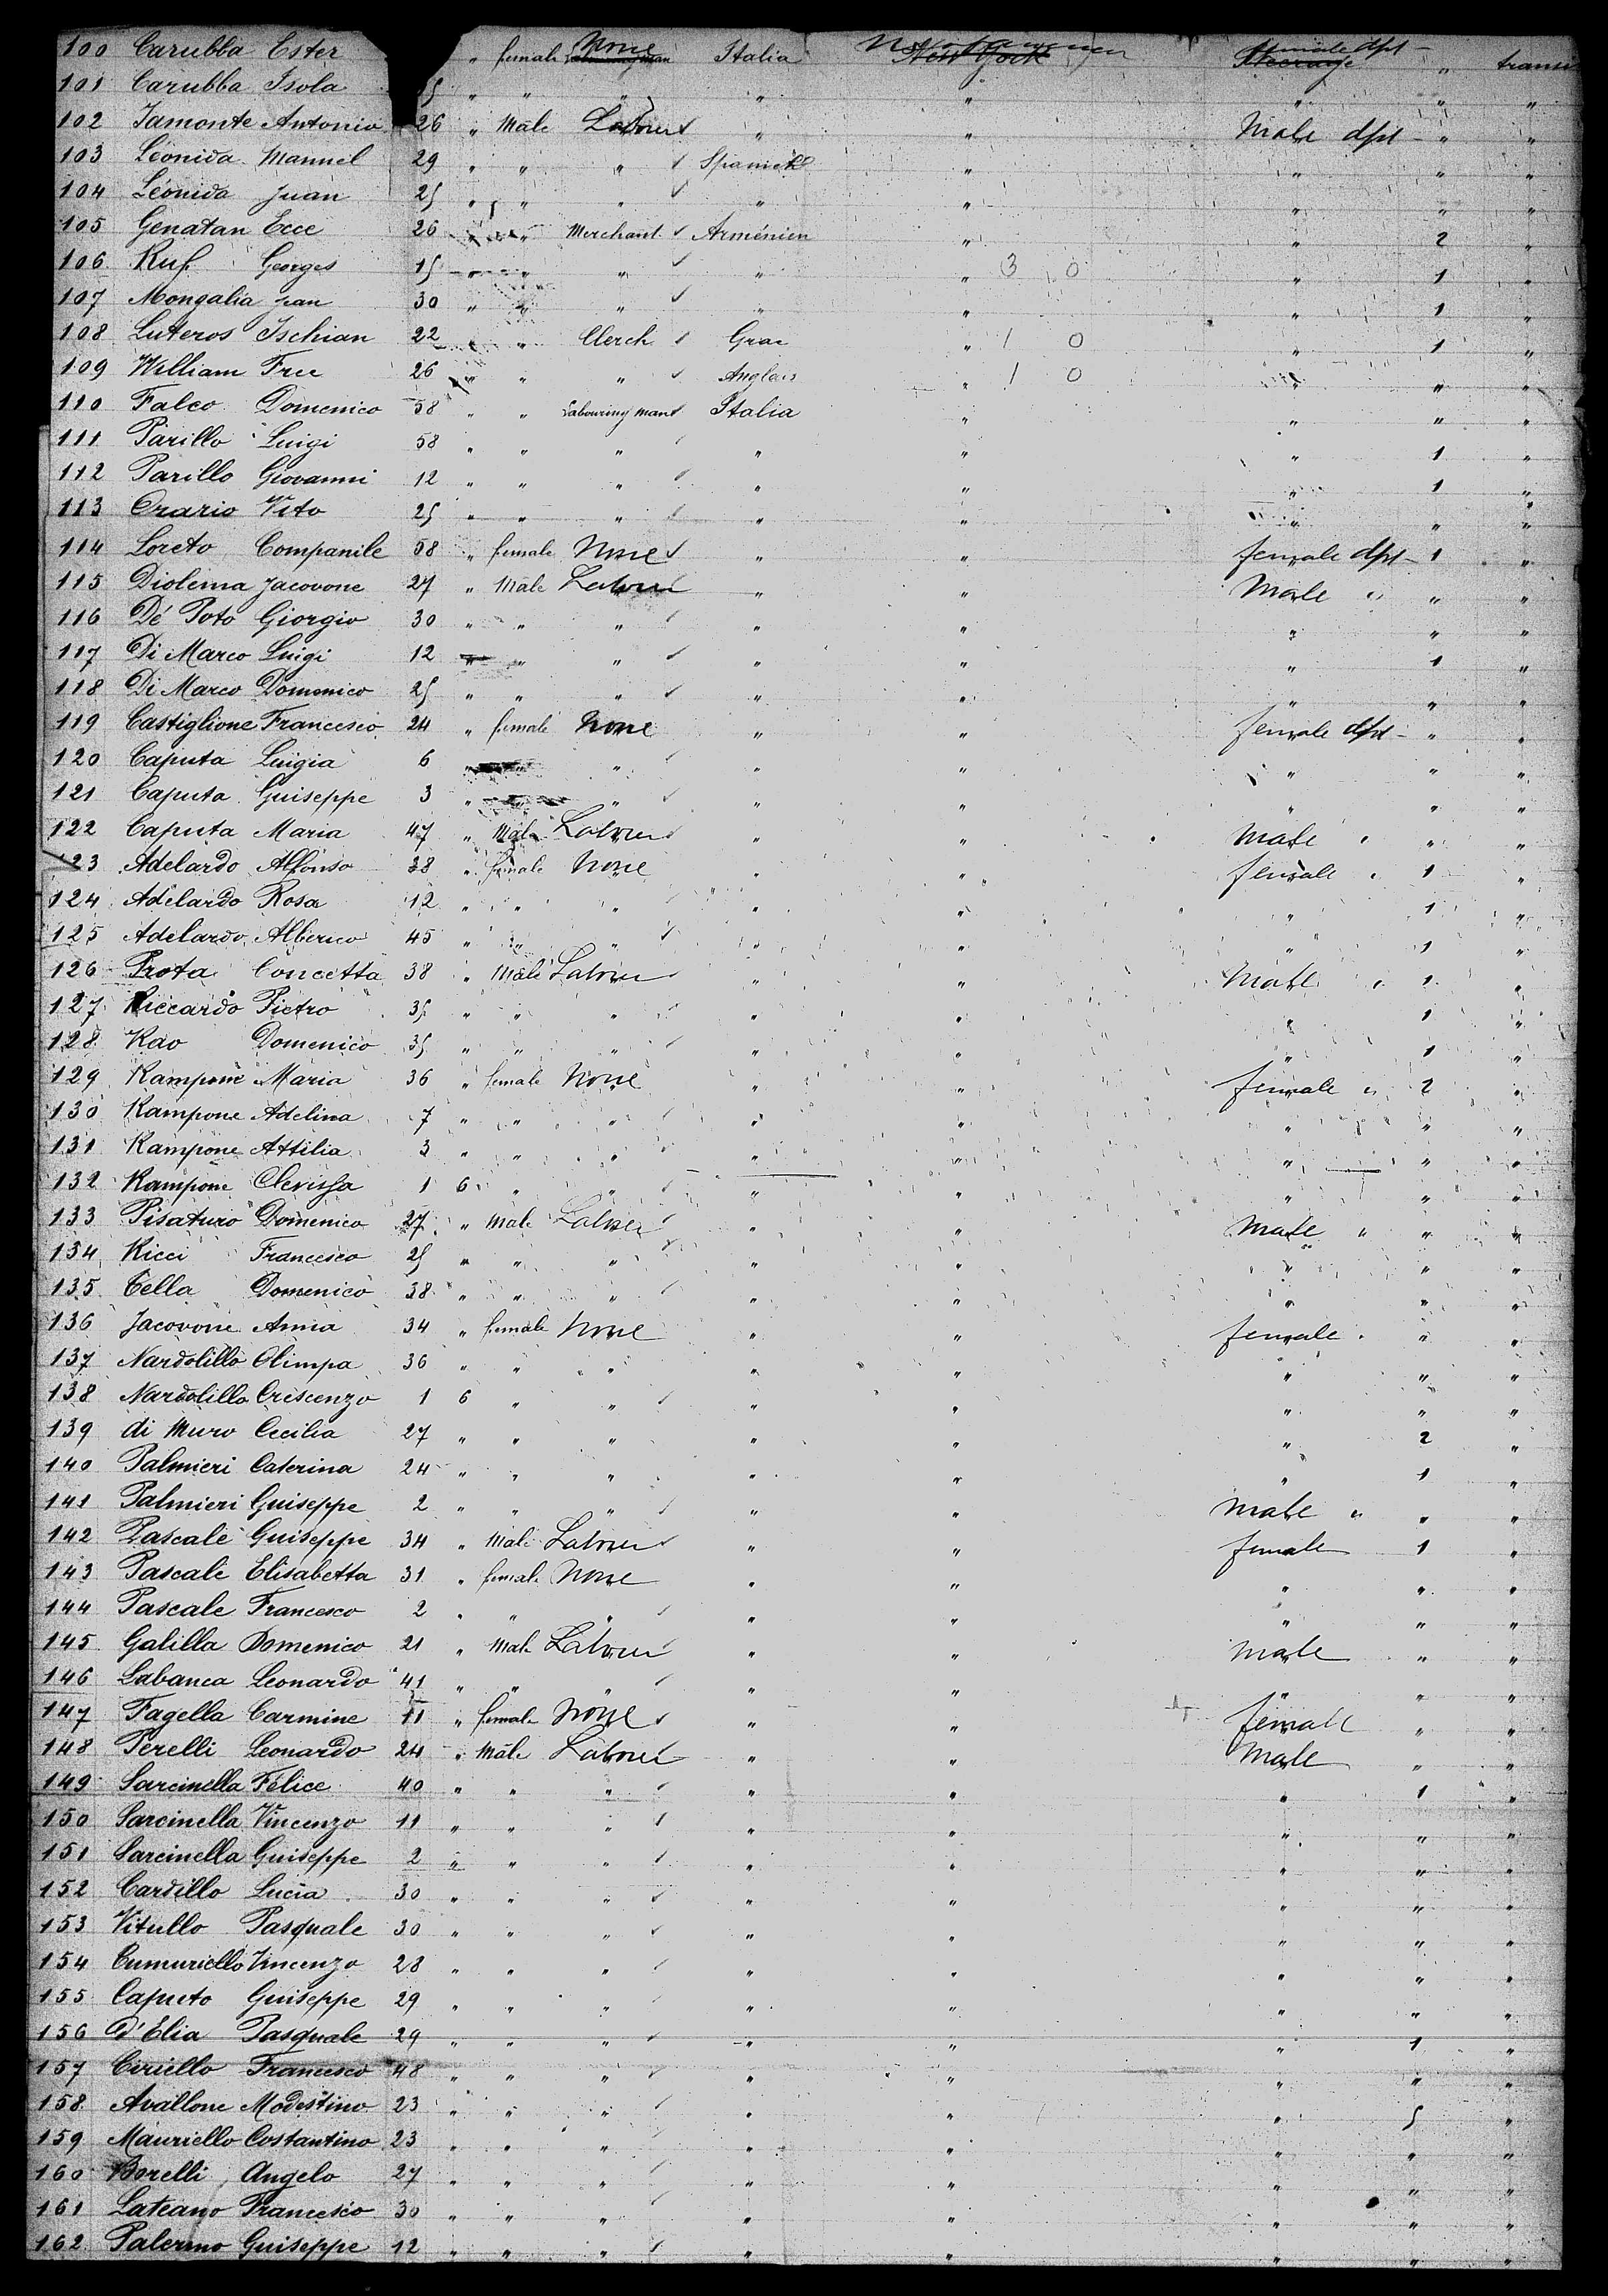 100 Carubba Ester " female None Italia New York female dpt - " transit
101 Carubba Isola " " " " " " " "
102 Jamonte Antonio 26 " Male Labour " " Male dpt - " "
103 Léonida Manuel 29 " " " Spanish " " " "
104 Léonida Juan 25 " " " " " " " "
105 Genatan Ecce 26 " " Merchant Arménien " " 2 "
106 Ruf Georges 15 " " " " " 3 0 " 1 "
107 Mongalia Jean 30 " " " " " " 1 "
108 Luteros Ischian 22 " " Clerch Grac " 1 0 " 1 "
109 William Free 26 " " " Anglais " 1 0 " " "
110 Falco Domenico 58 " " Labouring man Italia " " " "
111 Parillo Luigi 58 " " " " " " 1 "
112 Parillo Giovanni 12 " " " " " " 1 "
113 Orario Vito 25 " " " " " " " "
114 Loreto Companile 58 " female None " " female dpt - 1 "
115 Diolema Jacovone 27 " Male Labour " " Male " " "
116 Dé Poto Giorgio 30 " " " " " " " "
117 Di Marco Luigi 12 " " " " " " 1 "
118 Di Marco Domenico 25 " " " " " " " "
119 Castiglione Francesco 24 " female None " " female dpt - " "
120 Caputa Luigia 6 " " " " " " " "
121 Caputa Guiseppe 3 " " " " " " "
122 Caputa Maria 47 " Male Labour " " Male " " "
123 Adelardo Alfonso 38 " female None " " female " 1 "
124 Adelardo Rosa 12 " " " " " " 1 "
125 Adelardo Alberico 45 " " " " " " 1 "
126 Prota Concetta 38 " Male Labour " " Male " 1 "
127 Riccardo Pietro 35 " " " " " " 1 "
128 Rao Domenico 35 " " " " " " 1 "
129 Rampone Maria 36 " female None " " female " 2 "
130 Rampone Adelina 7 " " " " " " " "
131 Rampone Attilia 3 " " " " " " " "
132 Rampone Clerissa 1 6 " " " " " " "
133 Pisaturo Domenico 27 " Male Labour " " Male " " "
134 Ricci Francesco 25 " " " " " " " "
135 Cella Domenico 38 " " " " " " " "
136 Jacovone Anna 34 " female None " " female " " "
137 Nardolillo Olimpa 36 " " " " " " " "
138 Nardolillo Crescenzo 1 6 " " " " " " "
139 di Muro Cecilia 27 " " " " " " 2 "
140 Palmieri Caterina 24 " " " " " " 1 "
141 Palmieri Guiseppe 2 " " " " " Male " " "
142 Pascale Guiseppe 34 " Male Labour " " female 1 "
143 Pascale Elisabetta 31 " female None " " " " "
144 Pascale Francesco 2 " " " " " " " "
145 Galilla Domenico 21 " Male Labour " " Male " "
146 Labanca Leonardo 41 " " " " " " " "
147 Fagella Carmine 11 " female None " " female " "
148 Perelli Leonardo 24 " Male Labour " " Male " "
149 Sarcinella Felice 40 " " " " " " 1 "
150 Sarcinella Vincenzo 11 " " " " " " " "
151 Sarcinella Guiseppe 2 " " " " " " " "
152 Cardillo Lucia 30 " " " " " " " "
153 Vitullo Pasquale 30 " " " " " " " "
154 Cumuriello Vincenzo 28 " " " " " " " "
155 Caputo Guiseppe 29 " " " " " " " "
156 d'Elia Pasquale 29 " " " " " " 1 "
157 Ciriello Francesco 48 " " " " " " " "
158 Avallone Modestino 23 " " " " " " 5 "
159 Mauriello Costantino 23 " " " " " " " "
160 Borelli Angelo 27 " " " " " " " "
161 Lateano Francesco 30 " " " " " " " "
162 Palermo Guiseppe 12 " " " " " " " "